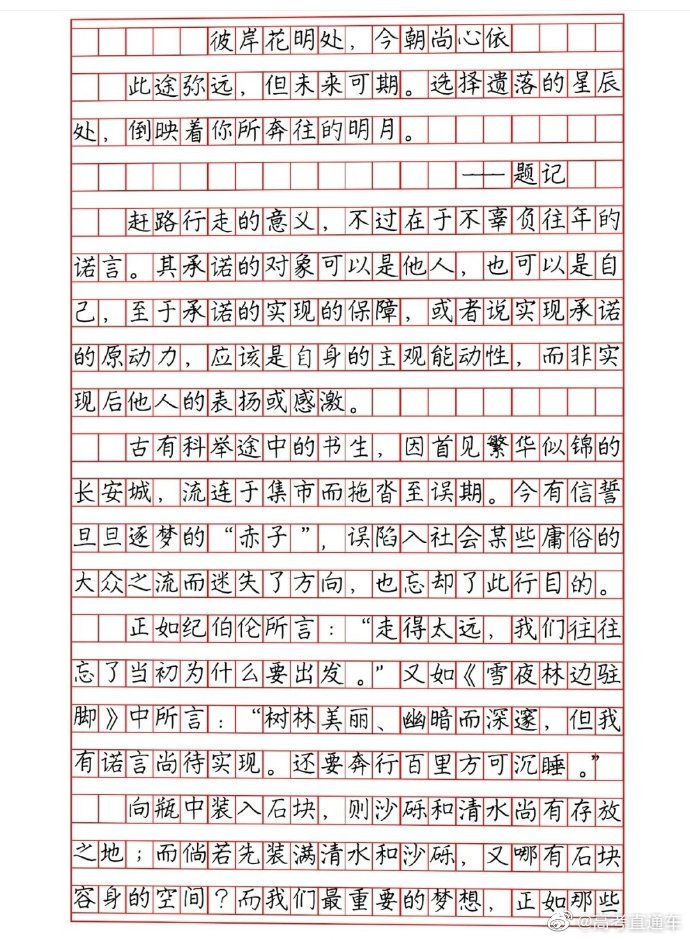 彼岸花明处，今朝尚心依
此途弥远，但未来可期。选择遗落的星辰
处，倒映着你所奔往的明月。
——题记
赶路行走的意义，不过在于不辜负往年的
诺言。其承诺的对象可以是他人，也可以是自
己，至于承诺的实现的保障，或者说实现承诺
的原动力，应该是自身的主观能动性，而非实
现后他人的表扬或感激。
古有科举途中的书生，因首见繁华似锦的
长安城，流连于集市而拖沓至误期。今有信誓
旦旦逐梦的“赤子”，误陷入社会某些庸俗的
大众之流而迷失了方向，也忘却了此行目的。
正如纪伯伦所言：“走得太远，我们往往
忘了当初为什么要出发。”又如《雪夜林边驻
脚》中所言：“树林美丽、幽暗而深邃，但我
有诺言尚待实现。还要奔行百里方可沉睡。”
向瓶中装入石块，则沙砾和清水尚有存放
之地；而倘若先装满清水和沙砾，又哪有石块
容身的空间？而我们最重要的梦想，正如那些
@高考直通车